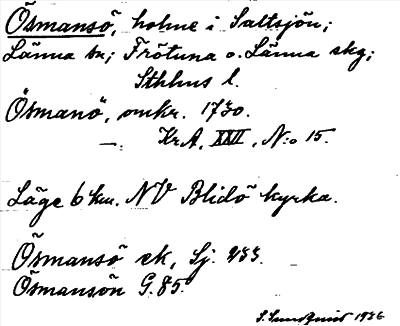 Ösmansö, holme i Saltsjön;
Länna sn; Frötuna o. Länna skg;
Sthlms l.
Ösmanö, omkr. 1730.
—. Kr.A, XXII, N:o 15.
Läge 6 km. NV Blidö kyrka.
Ösmansö ek, Sj. 233.
Ösmansön G.85.
S. Sundquist 1936